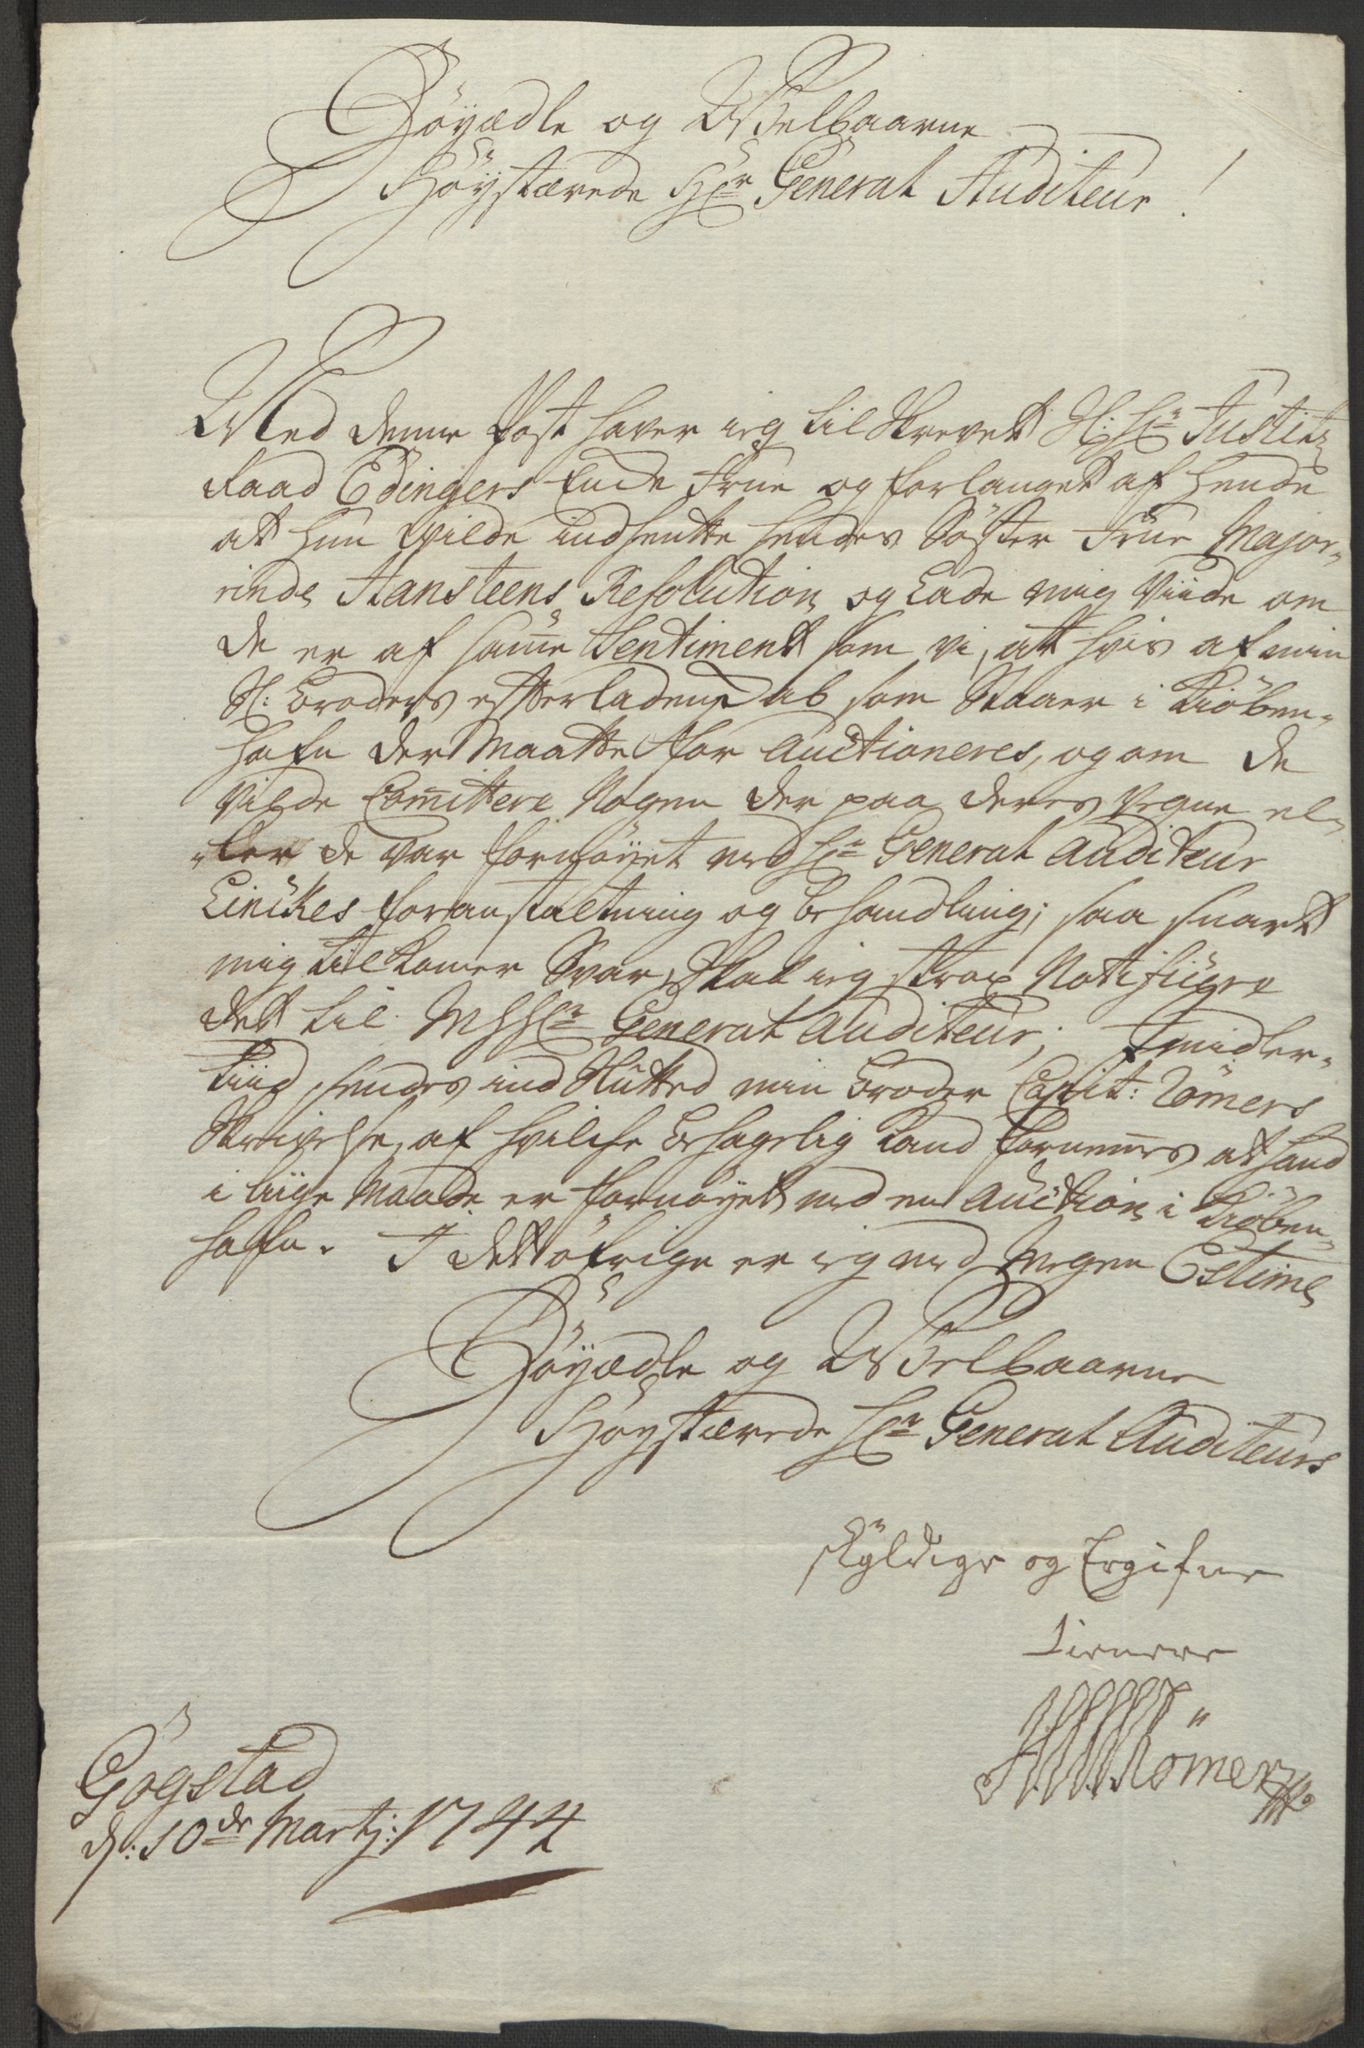 Höyædle og Welbaarne
Höystærede Hr General Auditeur!
Med denne Post haver ieg til skrevet S: Hr Justitz
Raad Edingers Enke Frue og forlanget af hende
at hun vilde indhente hendes Söster Frue Major-
inde Hansteens Resolution, og lade mig viide om
de er af samme Sentiment som vi, at hvis af min
S: Broders efterladenskab som staaer i Kiöben-
hafn der maatte for auctioneres, og om de
vilde Committere Nogen der paa deres vegne el-
ler de var fornöyet med Hr General Auditeur
Linckes foranstaltning og behandling; saa snart
mig tilkomer Svar, skal ieg strax Notificere
det til Hr General Auditeur; Imidler-
tiid sendes ind slutted min Broder Capit: Römers
Skrivelse, af hvilche behagelig kand fornemmes at hand
i liige maade er fornöyet med en Auction i Kiöben-
hafn. I det öfrige er ieg med megen Estime
Höyædle og Welbaarne
Höystærede Hr General Auditeurs
skyldige og Ergifne
tienere
Römer
Gogstad
d: 10de Martj: 1744